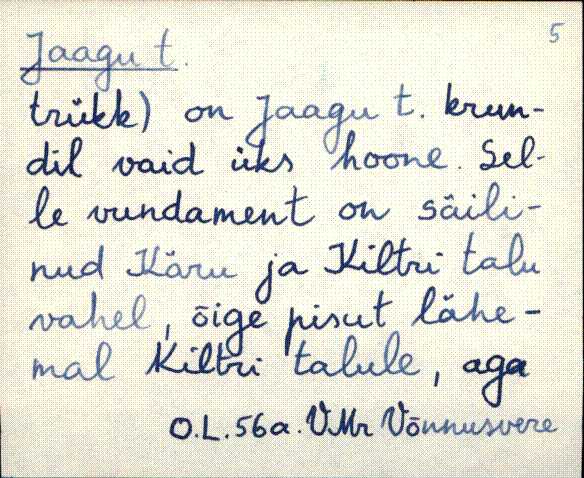 5
Jaagu t.
trükk) on Jaagu t. krun-
dil vaid üks hoone. Sel-
le vundament on säili-
nud Käru ja Kiltri talu
vahel, õige pisut lähe-
mal Kiltri talule, aga
O.L. 56a. VMr Võnnusvere